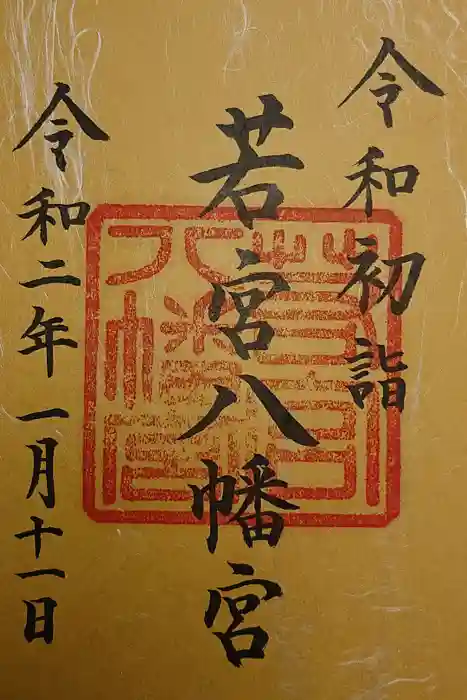 令和初詣
若宮八幡宮
令和二年一月十一日